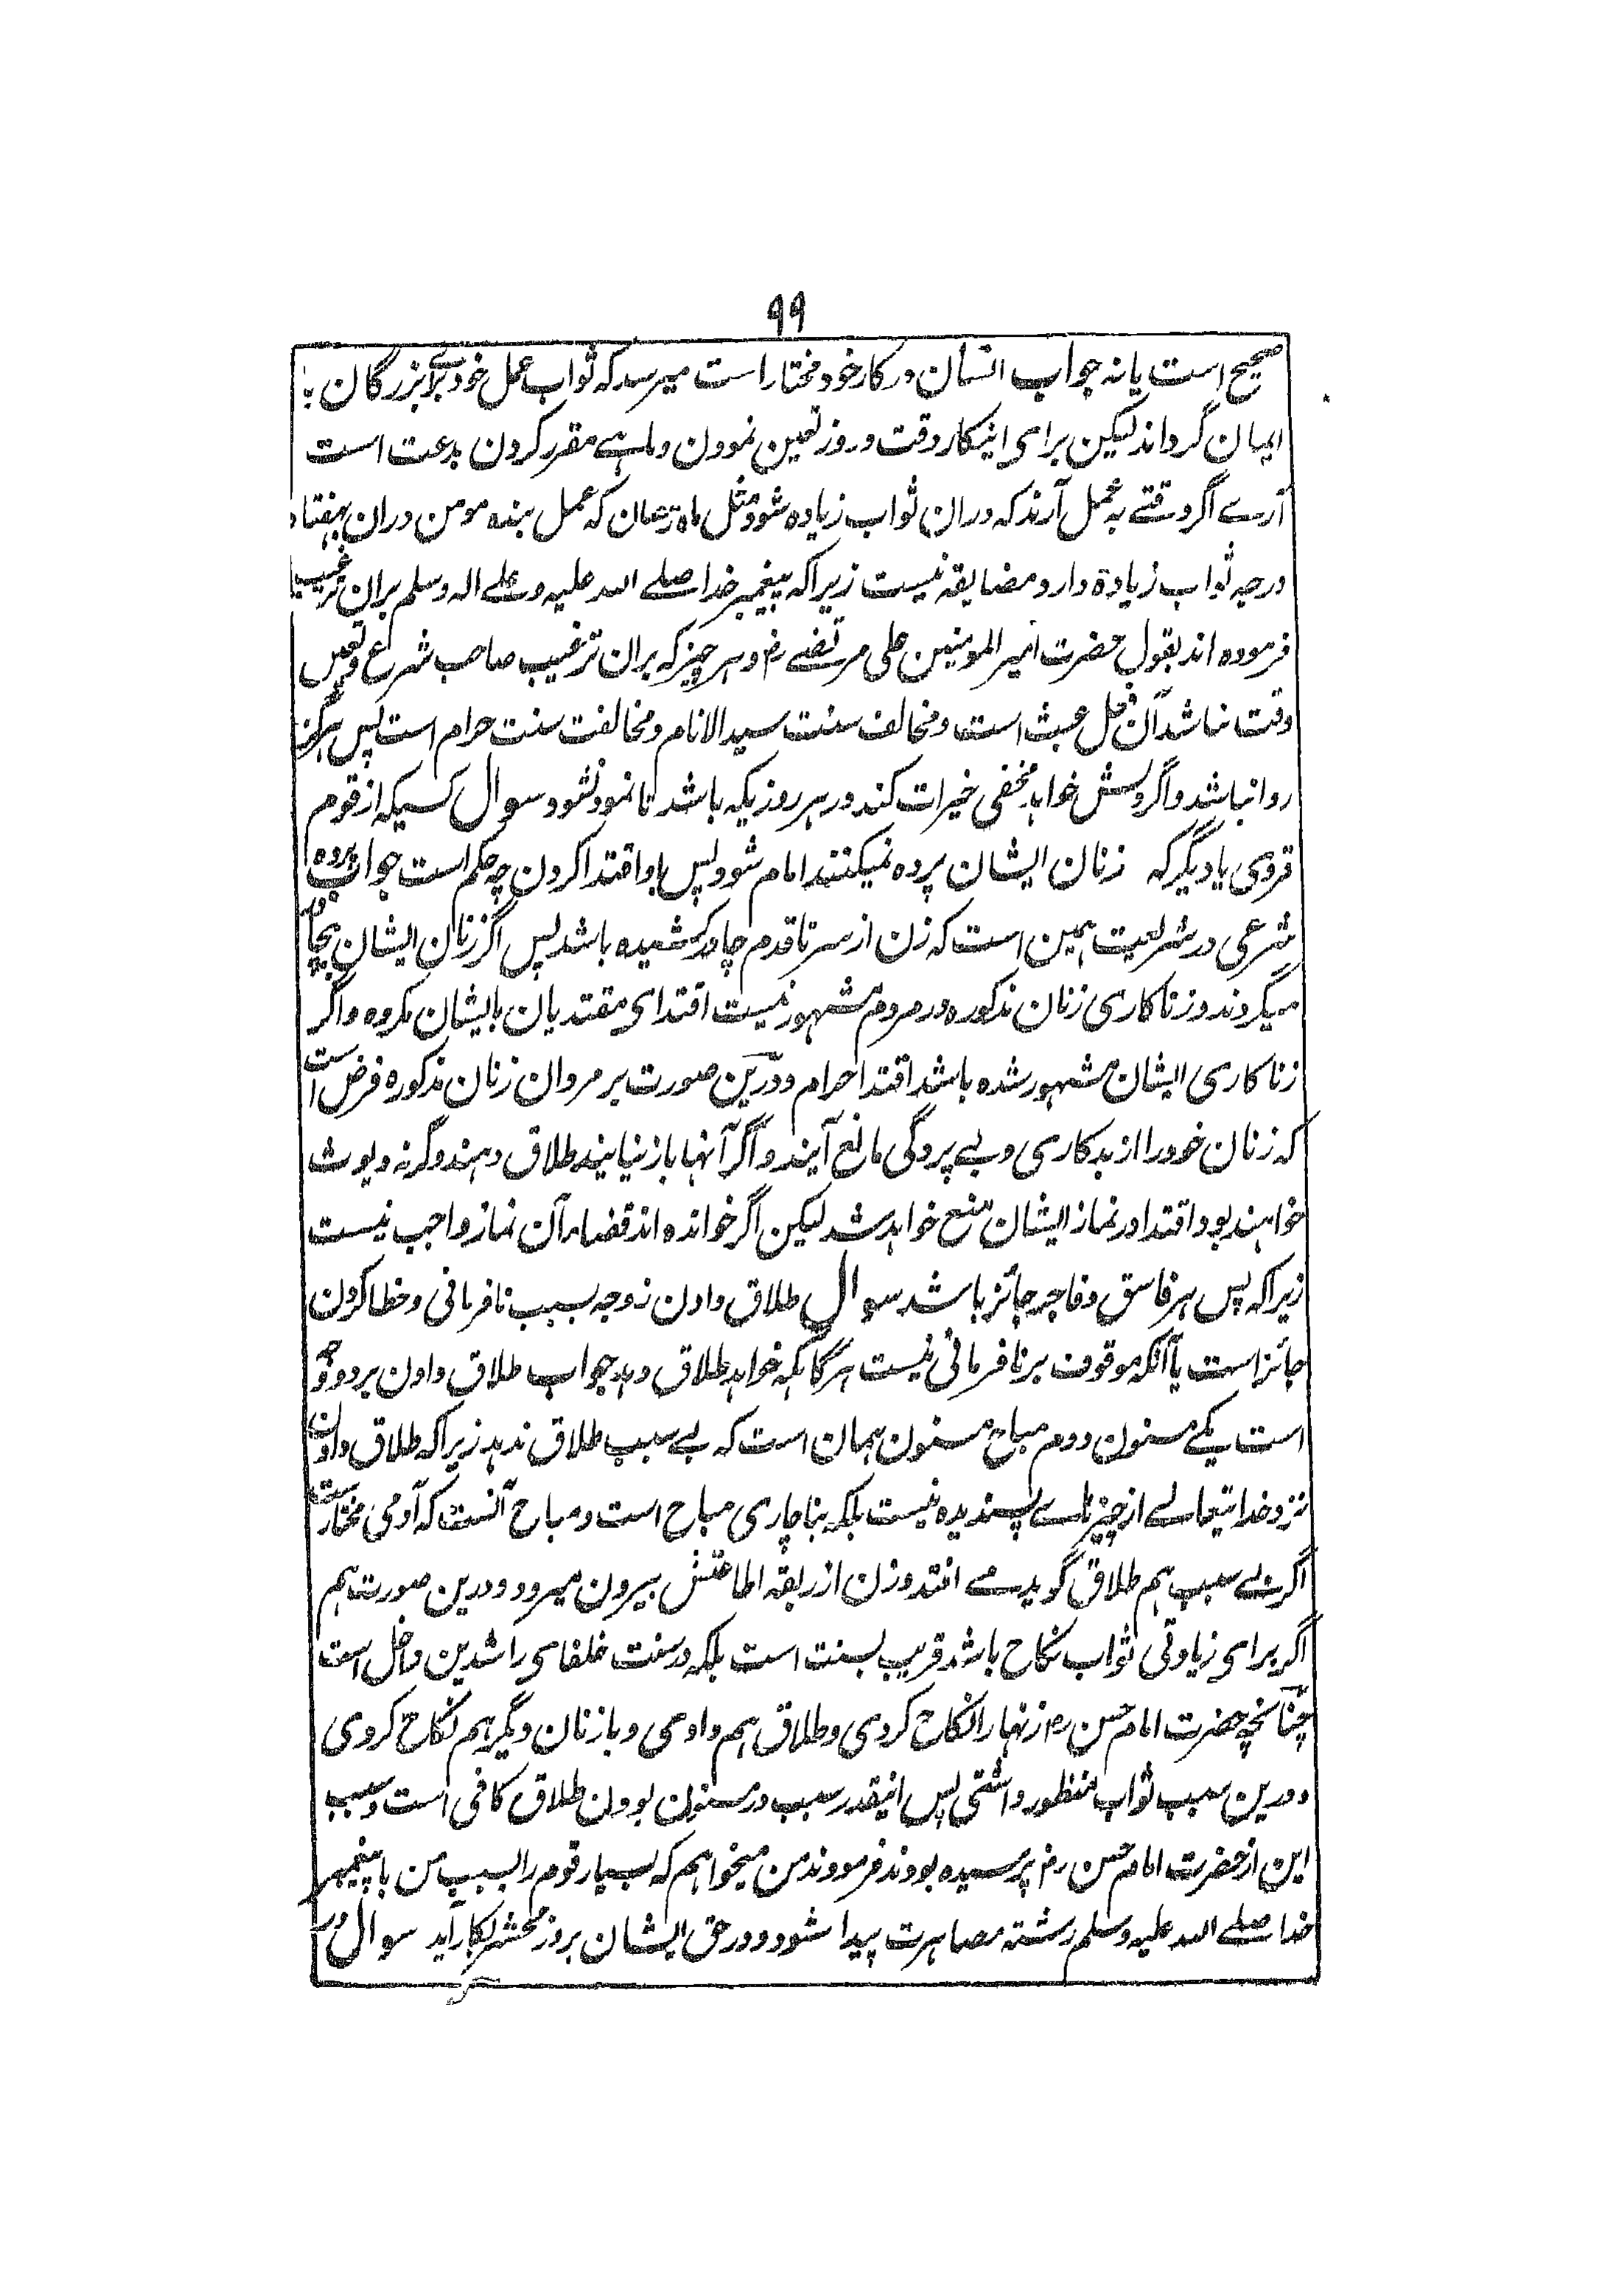 ۹۹
صحیح است یا نہ جواب انسان در کار خود مختار است میرسد کہ ثواب عمل خود برای بزرگان با
ایمان گرداند لیکن برای اینکار وقت و روز تعین نمودن و ماہے مقرر کردن بدعت است
آرے اگر وقتے بہ عمل آرند کہ دران ثواب زیادہ شود مثل ماہ رمضان کہ عمل بندہ مومن دران بہفتاد
درجہ ثواب زیادۃ دارد مضایقہ نیست زیراکہ پیغمبر خدا صلے اللہ علیہ و علے الہ وسلم بران ترغیبہا
فرمودہ اند بقول حضرت امیر المومنین علی مرتضے رض و ہر چیز کہ بران ترغیب صاحب شرع و تعین
وقت نباشد آن فعل عبث است و مخالف سنت سید الانام و مخالفت سنت حرام است پس ہرگز
روا نباشد و اگر دلش خواہد مخفی خیرات کند در ہر روزیکہ باشد تا نمود نشود سوال کسیکہ از قوم
قروی یا دیگر کہ زنان ایشان پردہ نمیکنند امام شود پس باو اقتدا کردن چہ حکم است جواب پردہ
شرعی در شریعت ہمین است کہ زن از سر تا قدم چادر کشیدہ باشد پس اگر زنان ایشان بیچادر
میگردند و زناکاری زنان مذکورہ در مردم مشہور نیست اقتدای مقتدیان بایشان مکروہ و اگر
زناکاری ایشان مشہور شدہ باشد اقتدا حرام و درین صورت بر مردان زنان مذکورہ فرض است
کہ زنان خود را از بدکاری و بے پردگی مانع آیند و اگر آنہا باز نیایند طلاق دہند وگرنہ دیوث
خواہند بود و اقتدا در نماز ایشان منع خواہد شد لیکن اگر خواندہ اند قضاء آن نماز واجب نیست
زیراکہ پس ہر فاسق و فاجر جائز باشد سوال طلاق دادن زوجہ بسبب نافرمانی و خطا کردن
جائز است یا آنکہ موقوف بر نافرمانی نیست ہرگاہیکہ خواہد طلاق دہد جواب طلاق دادن بر دو وجہ
است یکے مسنون دوم مباح مسنون ہمان است کہ بے سبب طلاق ندہد زیراکہ طلاق دادن
نزد خدا تیعالے از چیزہاے پسندیدہ نیست بلکہ بناچاری مباح است و مباح آنست کہ آدمی مختار است
اگر بے سبب ہم طلاق گوید مے افتد و زن از ربقہ اطاعتش بیرون میرود و درین صورت ہم
اگر برای زیادتی ثواب نکاح باشد قریب بسنت است بلکہ در سنت خلفای راشدین داخل است
چنانچہ حضرت امام حسن رض زنہا را نکاح کردی و طلاق ہم دادی و با زنان دیگر ہم نکاح کردی
و درین سبب ثواب منظور داشتی پس اینقدر سبب در مسنون بودن طلاق کافی است و سبب
این از حضرت امام حسن رض پرسیدہ بودند فرمودند من میخواہم کہ بسیار قوم را بسبب من با پیغمبر
خدا صلے اللہ علیہ وسلم رشتہ مصاہرت پیدا شود و در حق ایشان بروز محشر بکار آید سوال در